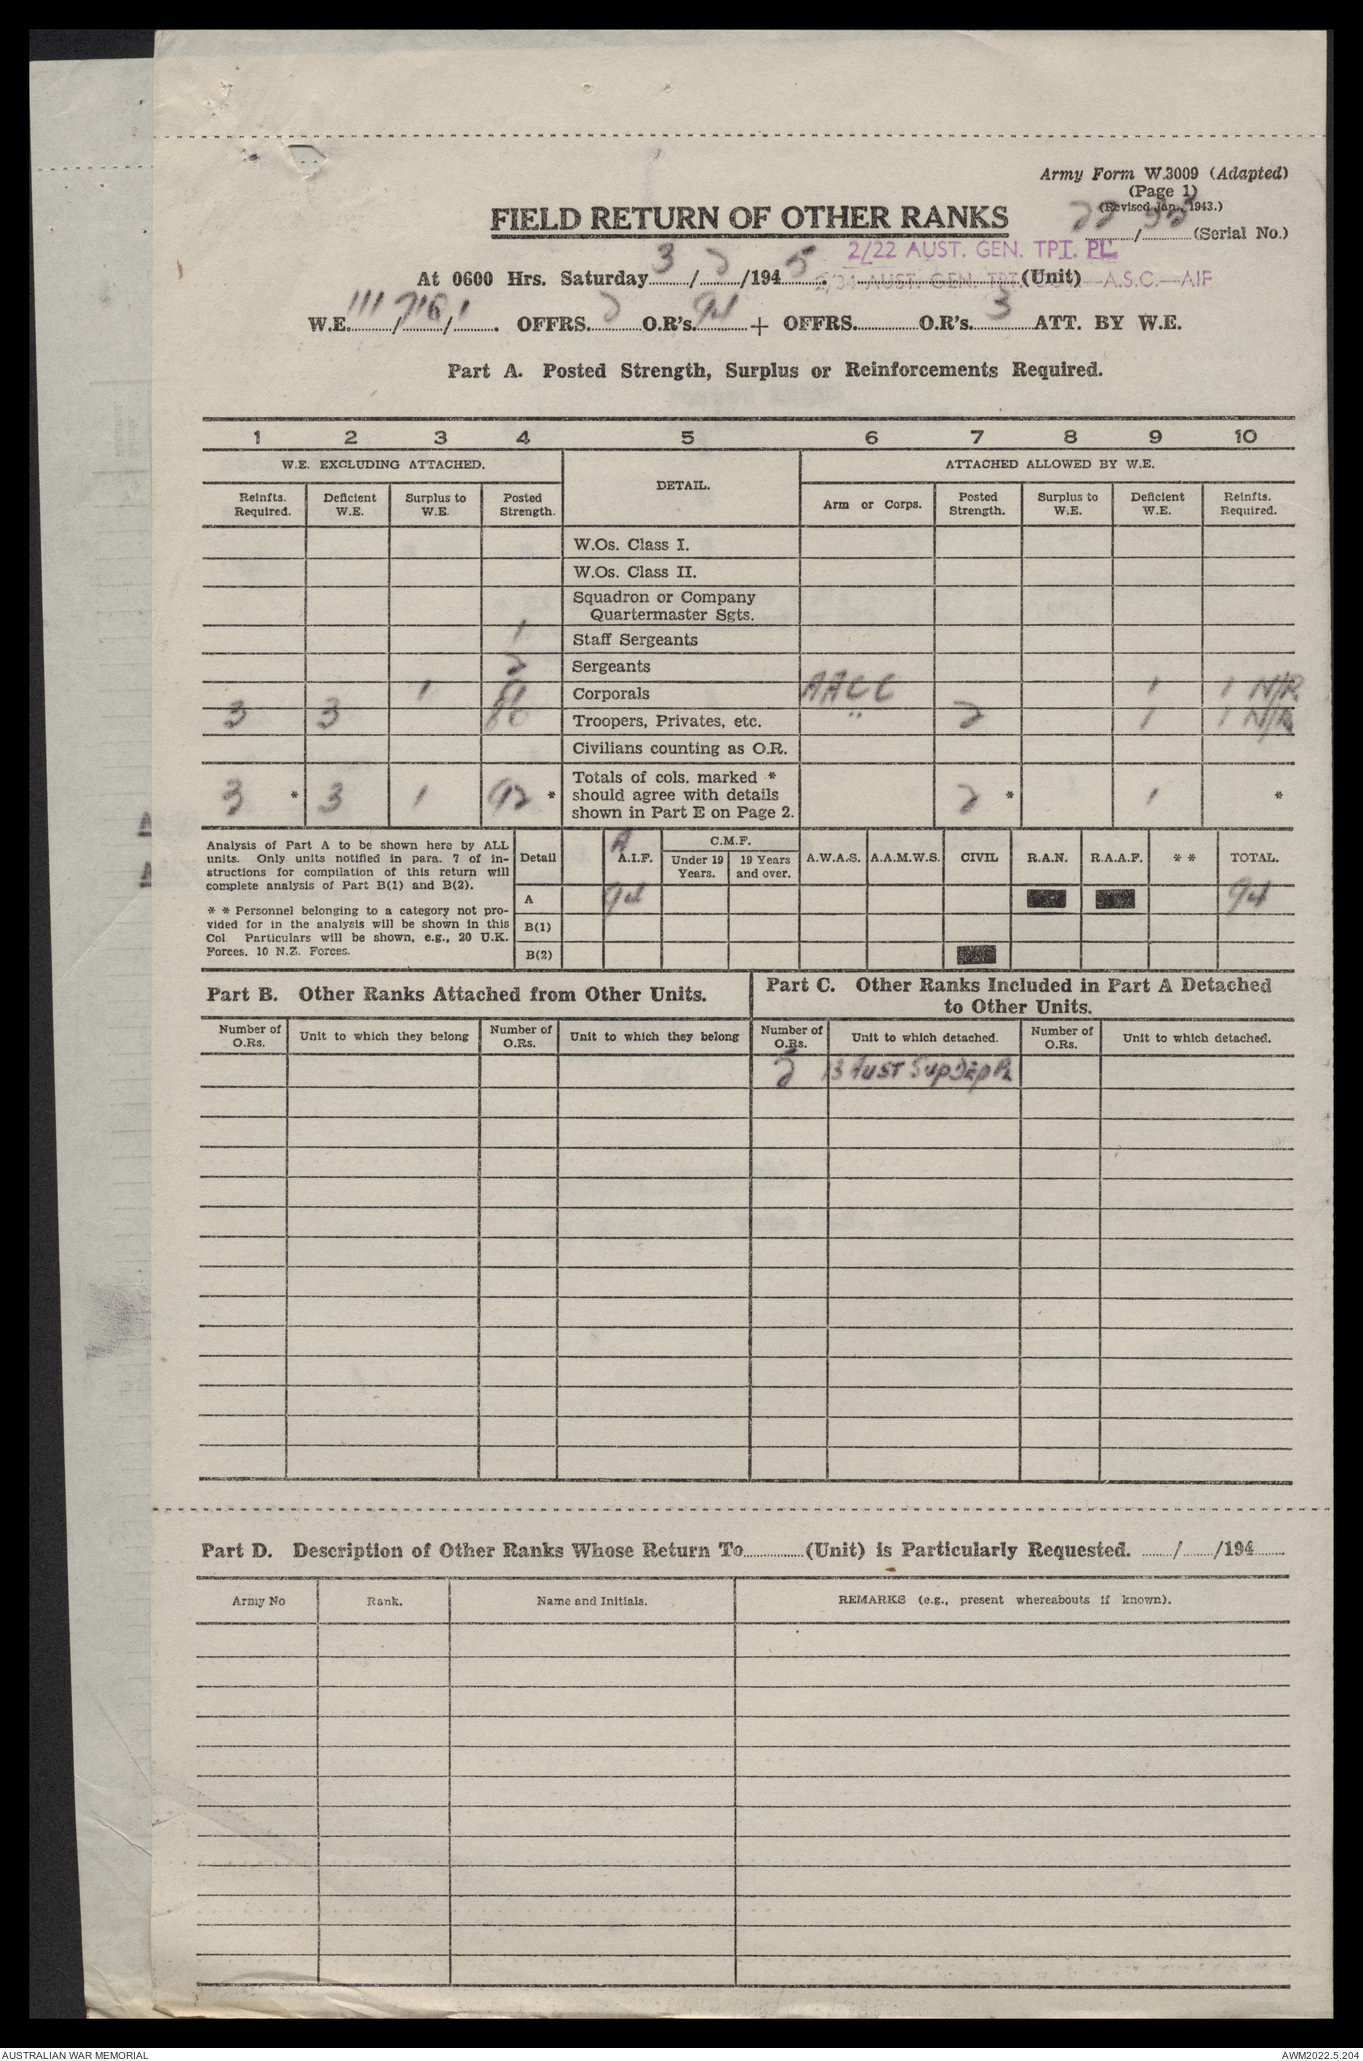 Army Form W.3009 (Adapted)
(Page 1)
(Revised Jan., 1943.)
FIELD RETURN OF OTHER RANKS
22/52 (Serial No.)
2/22 AUST. GEN. TPT. PL.
At 0600 Hrs. Saturday 3/2/1945. A.S.C.—AIF (Unit)
W.E. 111/716/1. OFFRS. 2 O.R's. 94 + OFFRS. O.R's. 3 ATT. BY W.E.
Part A. Posted Strength, Surplus or Reinforcements Required.
1 2 3 4 5 6 7 8 9 10
W.E. EXCLUDING ATTACHED. DETAIL. ATTACHED ALLOWED BY W.E.
Reinfts. Required. Deficient W.E. Surplus to W.E. Posted Strength. Arm or Corps. Posted Strength. Surplus to W.E. Deficient W.E. Reinfts. Required.
W.Os. Class I.
W.Os. Class II.
Squadron or Company
Quartermaster Sgts.
1 Staff Sergeants
2 Sergeants
1 Corporals AACC 1 1 N/R.
3 3 86 Troopers, Privates, etc. " 2 1 1 N/R
Civilians counting as O.R.
3 * 3 1 92 * Totals of cols. marked * 2 * 1 *
should agree with details
shown in Part E on Page 2.
Analysis of Part A to be shown here by ALL
units. Only units notified in para. 7 of in-
structions for compilation of this return will
complete analysis of Part B(1) and B(2).
* * Personnel belonging to a category not pro-
vided for in the analysis will be shown in this
Col. Particulars will be shown, e.g., 20 U.K.
Forces, 10 N.Z. Forces.
Detail A.I.F. C.M.F. Under 19 Years. 19 Years and over. A.W.A.S. A.A.M.W.S. CIVIL R.A.N. R.A.A.F. * * TOTAL.
A 94 94
B(1)
B(2)
Part B. Other Ranks Attached from Other Units.
Part C. Other Ranks Included in Part A Detached
to Other Units.
Number of O.Rs. Unit to which they belong Number of O.Rs. Unit to which they belong Number of O.Rs. Unit to which detached. Number of O.Rs. Unit to which detached.
2 13 AUST Sup Dep Pl
Part D. Description of Other Ranks Whose Return To............(Unit) is Particularly Requested. ....../....../194......
Army No Rank. Name and Initials. REMARKS (e.g., present whereabouts if known).
AUSTRALIAN WAR MEMORIAL AWM2022.5.204